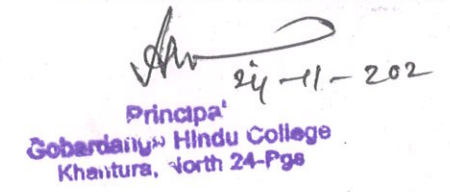 24-11-202
Principa'
Hindu College
Khantura, North 24-Pgs